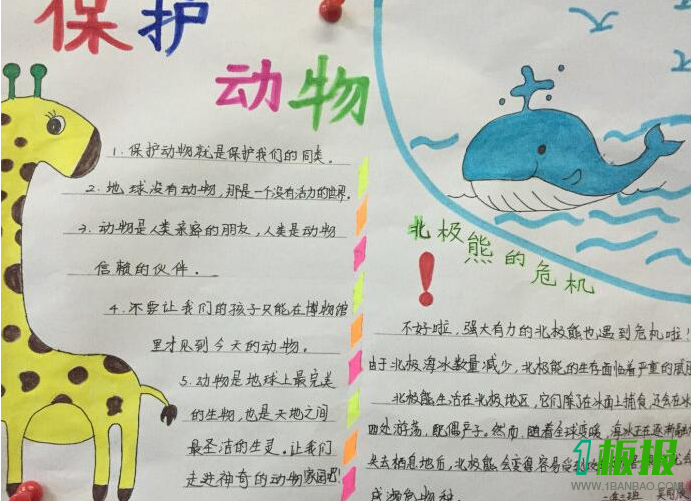 保护
动物
1.保护动物就是保护我们的同类。
2.地球没有动物,那是一个没有活力的世界。
3.动物是人类亲密的朋友,人类是动物
信赖的伙伴。
4.不要让我们的孩子只能在博物馆
里才见到今天的动物。
5.动物是地球上最完美
的生物,也是天地之间
最圣洁的生灵。让我们
走进神奇的动物家园吧!
北极熊的危机
!
不好啦,强大有力的北极熊也遇到危机啦!
由于北极海冰数量减少,北极熊的生存面临着严重的威胁
北极熊生活在北极地区,它们除了在冰面上捕食,还会在冰
四处游荡,配偶产子。然而,随着全球变暖,海冰正在逐渐
失去栖息地后,北极熊会变得容易受
成濒危物种
1板报
WWW.1BANBAO.COM